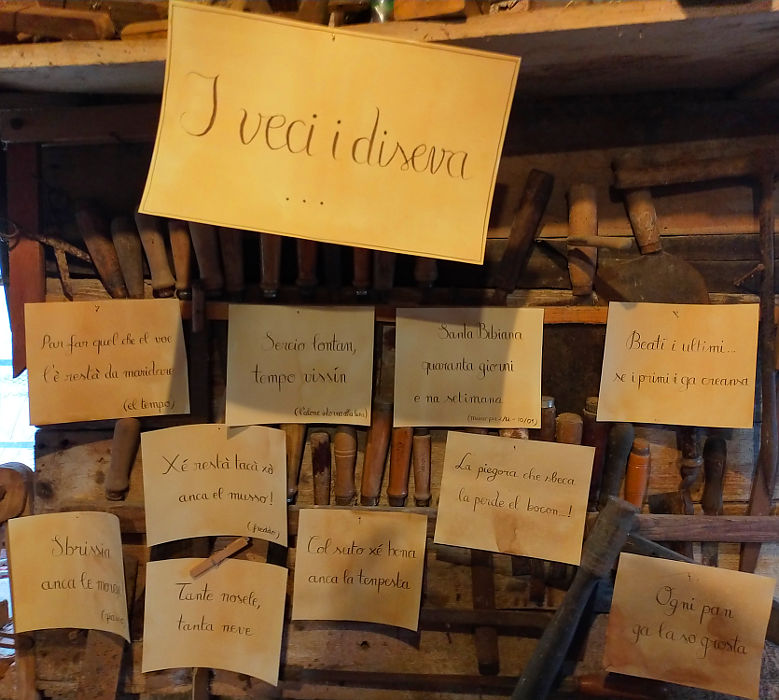 I veci i diseva
...
Par far quel che el voe
l'è restà da maridare
(el tempo)
Sercio lontan,
tempo vissin
Santa Bibiana
quaranta giorni
e na setimana
Beati i ultimi...
se i primi i ga creansa
Xé restà tacà xò
anca el musso!
(freddo)
La piegora che sbeca
la perde el bocon...!
Sbrissia
anca le
Tante nosele,
tanta neve
Col suto xé bona
anca la tempesta
Ogni pan
ga la so grosta